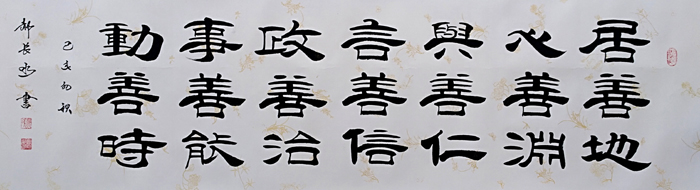 居善地
心善淵
與善仁
言善信
政善治
事善能
動善時
己亥初秋